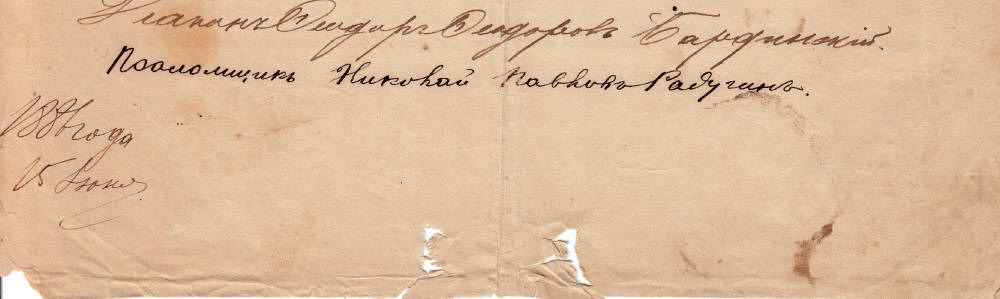 Диаконъ Ѳеодоръ Ѳеодоровъ Бардинскій.
Псаломщикъ Николай Павловъ Радугинъ.
года
15 Июня